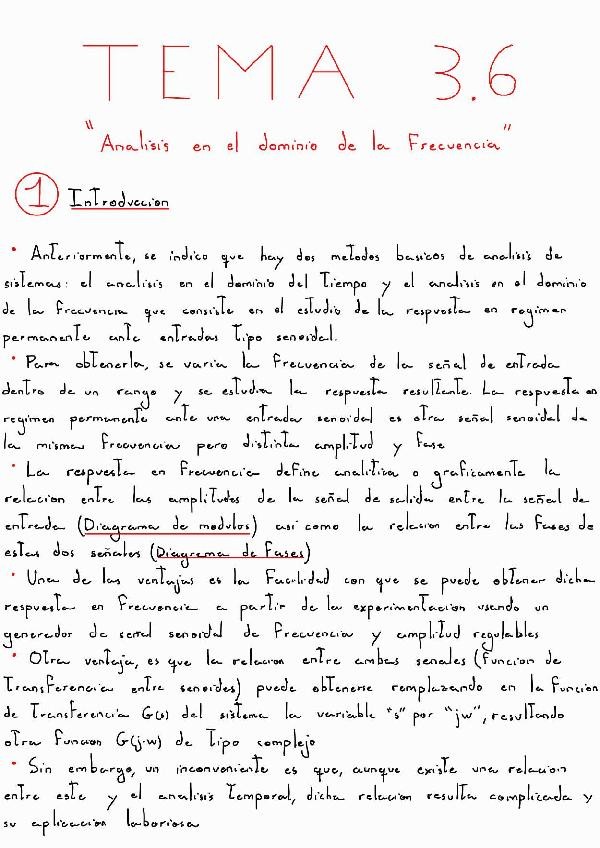 TEMA 3.6
"Analisis en el dominio de la Frecuencia"
① Introduccion
• Anteriormente, se indico que hay dos metodos basicos de analisis de
sistemas: el analisis en el dominio del Tiempo y el analisis en el dominio
de la frecuencia que consiste en el estudio de la respuesta en regimen
permanente ante entradas tipo senoidal.
• Para obtenerla, se varia la frecuencia de la señal de entrada
dentro de un rango y se estudia la respuesta resultante. La respuesta en
regimen permanente ante una entrada senoidal es otra señal senoidal de
la misma frecuencia pero distinta amplitud y fase
• La respuesta en frecuencia define analitica o graficamente la
relacion entre las amplitudes de la señal de salida entre la señal de
entrada (Diagrama de modulos) asi como la relacion entre las fases de
estas dos señales (Diagrama de Fases)
• Una de las ventajas es la Facilidad con que se puede obtener dicha
respuesta en frecuencia a partir de la experimentacion usando un
generador de senal senoidal de frecuencia y amplitud regulables
• Otra ventaja, es que la relacion entre ambas senales (funcion de
Transferencia entre senoides) puede obtenerse remplazando en la funcion
de Transferencia G(s) del sistema la variable "s" por "jw", resultando
otra funcion G(j·w) de tipo complejo
• Sin embargo, un inconveniente es que, aunque existe una relacion
entre este y el analisis Temporal, dicha relacion resulta complicada y
su aplicacion laboriosa